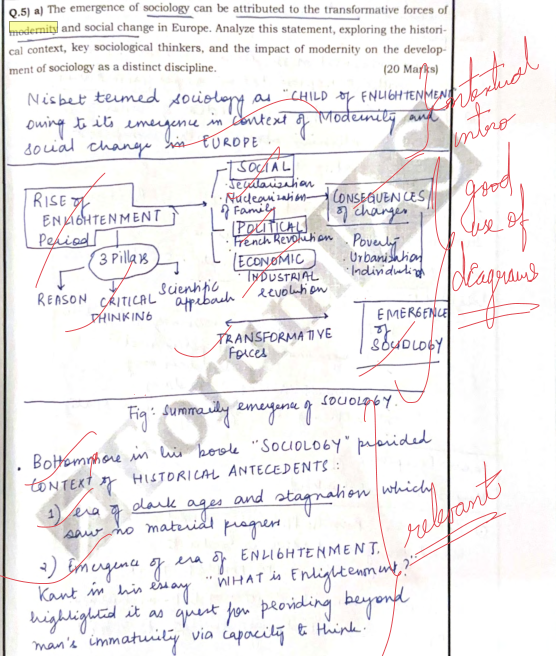 Q.5) a) The emergence of sociology can be attributed to the transformative forces of
modernity and social change in Europe. Analyze this statement, exploring the histori-
cal context, key sociological thinkers, and the impact of modernity on the develop-
ment of sociology as a distinct discipline. (20 Marks)
Nisbet termed sociology as "CHILD of ENLIGHTENMENT
owing to its emergence in context of Modernity and
social change in EUROPE.
contextual
intro
good
use of
diagrams
RISE of
ENLIGHTENMENT
Period
3 Pillars
REASON
CRITICAL
THINKING
Scientific
approach
SOCIAL
· Secularisation
· Nuclearisation
of Family
POLITICAL
· French Revolution
ECONOMIC
· INDUSTRIAL
revolution
CONSEQUENCES
of changes
· Poverty
· Urbanisation
TRANSFORMATIVE
Forces
EMERGENCE
of
SOCIOLOGY
Fig: Summarily emergence of SOCIOLOGY.
· Bottommore in his book "SOCIOLOGY" provided
CONTEXT of HISTORICAL ANTECEDENTS:
1) era of dark ages and stagnation which
saw no material progress
2) Emergence of era of ENLIGHTENMENT.
Kant in his essay "WHAT is Enlightenment?"
highlighted it as quest for providing beyond
man's immaturity via capacity to think.
relevant